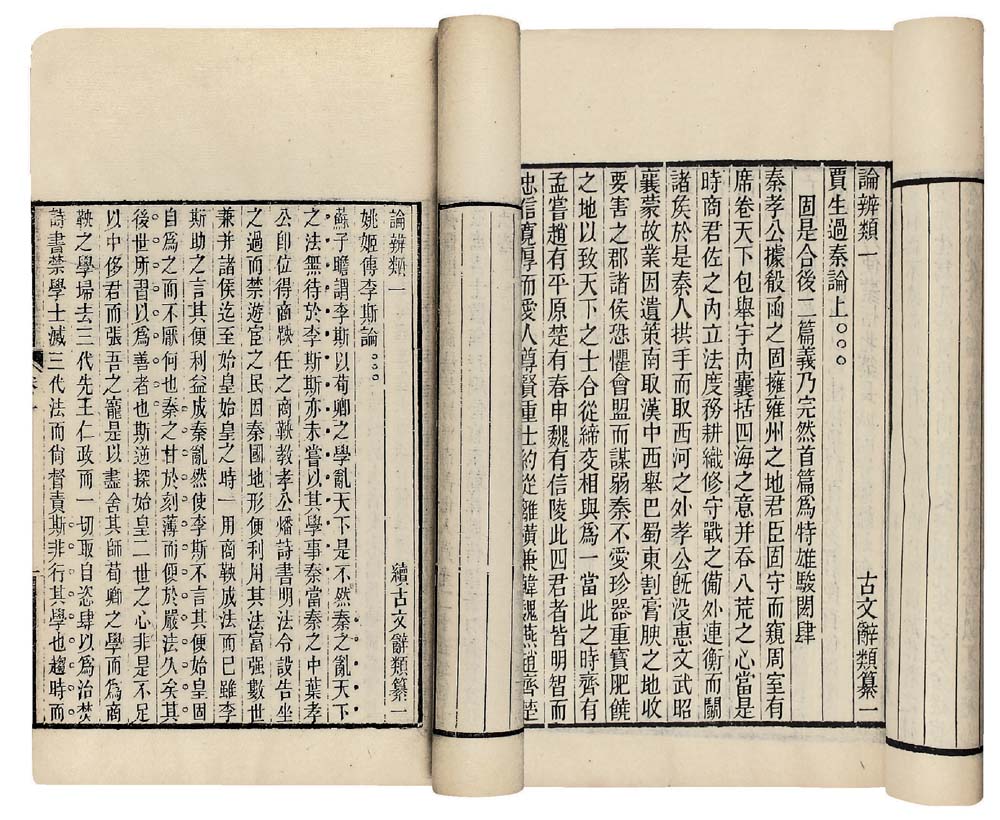 論辨類一　古文辭類纂一
賈生過秦論上○○○
固是合後二篇義乃完然首篇爲特雄駿閎肆
秦孝公據殽函之固擁雍州之地君臣固守而窺周室有
席卷天下包舉宇內囊括四海之意并吞八荒之心當是
時商君佐之內立法度務耕織修守戰之備外連衡而鬭
諸矦於是秦人拱手而取西河之外孝公旣沒惠文武昭
襄蒙故業因遺策南取漢中西舉巴蜀東割膏腴之地收
要害之郡諸侯恐懼會盟而謀弱秦不愛珍器重寶肥饒
之地以致天下之士合從締交相與爲一當此之時齊有
孟嘗趙有平原楚有春申魏有信陵此四君者皆明智而
忠信寬厚而愛人尊賢重士約從離橫兼韓魏燕趙齊楚
論辨類一　續古文辭類纂一
姚姬傳李斯論○○○
蘇子瞻謂李斯以荀卿之學亂天下是不然秦之亂天下
之法無待於李斯斯亦未嘗以其學事秦當秦之中葉孝
公卽位得商鞅任之商鞅教孝公燔詩書明法令設告坐
之過而禁遊宦之民因秦國地形便利用其法富强數世
兼并諸侯迄至始皇始皇之時一用商鞅成法而已雖李
斯助之言其便利益成秦亂然使李斯不言其便始皇固
自爲之而不厭何也秦之甘於刻薄而便於嚴法久矣其
後世所習以爲善者也斯逆探始皇二世之心非是不足
以中侈君而張吾之寵是以盡舍其師荀卿之學而爲商
鞅之學埽去三代先王仁政而一切取自恣肆以爲治焚
詩書禁學士滅三代法而尚督責斯非行其學也趨時而